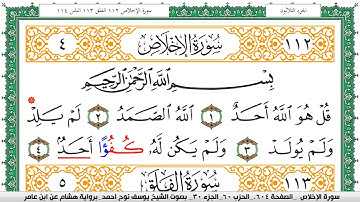 الجزء الثلاثون سورة الإخلاص ١١٢ الفلق ١١٣ الناس ١١٤
١١٢ سُورَةُ الإِخْلَاصِ ٤
بِسْمِ اللَّهِ الرَّحْمَٰنِ الرَّحِيمِ
قُلْ هُوَ اللَّهُ أَحَدٌ ١ اللَّهُ الصَّمَدُ ٢ لَمْ يَلِدْ
وَلَمْ يُولَدْ ٣ وَلَمْ يَكُن لَّهُ كُفُؤًا أَحَدٌ ٤
١١٣ سُورَةُ الفَلَقِ ٥
سورة الإخلاص الصفحة ٦٠٤ الحزب ٦٠ الجزء ٣٠ بصوت الشيخ يوسف نوح احمد برواية هشام عن ابن عامر